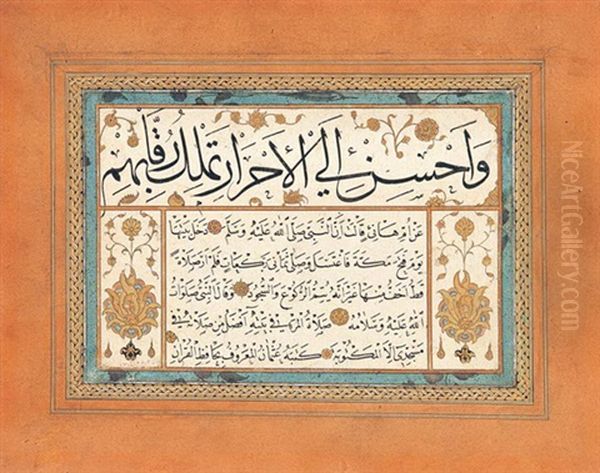 وَاَحْسِنْ اِلَي الْاَحْرَارِ تَمْلِكْ رِقَابَهِمِ
عَنْ اُمِّ هَانِي قَالَتْ اِنَّ النَّبِيَّ صَلَّى اللهُ عَلَيْهِ وَسَلَّمَ دَخَلَ بَيْتَهَا
يَوْمَ فَتْحِ مَكَّةَ فَاغْتَسَلَ وَصَلَّى ثَمَانِيَ رَكَعَاتٍ فَلَمْ اَرَ صَلَاةً
قَطُّ اَخَفَّ مِنْهَا غَيْرَ اَنَّهُ يُتِمُّ الرُّكُوعَ وَالسُّجُودَ وَقَالَ النَّبِيُّ صَلَوَاتُ
اللهِ عَلَيْهِ وَسَلَامُهُ صَلَاةُ الْمَرْءِ فِي بَيْتِهِ اَفْضَلُ مِنْ صَلَاتِهِ فِي
مَسْجِدِي اِلَّا الْمَكْتُوبَةَ كَتَبَهُ عُثْمَانُ الْمَعْرُوفُ بِحَافِظِ الْقُرْآنِ
NiceArtGallery.com